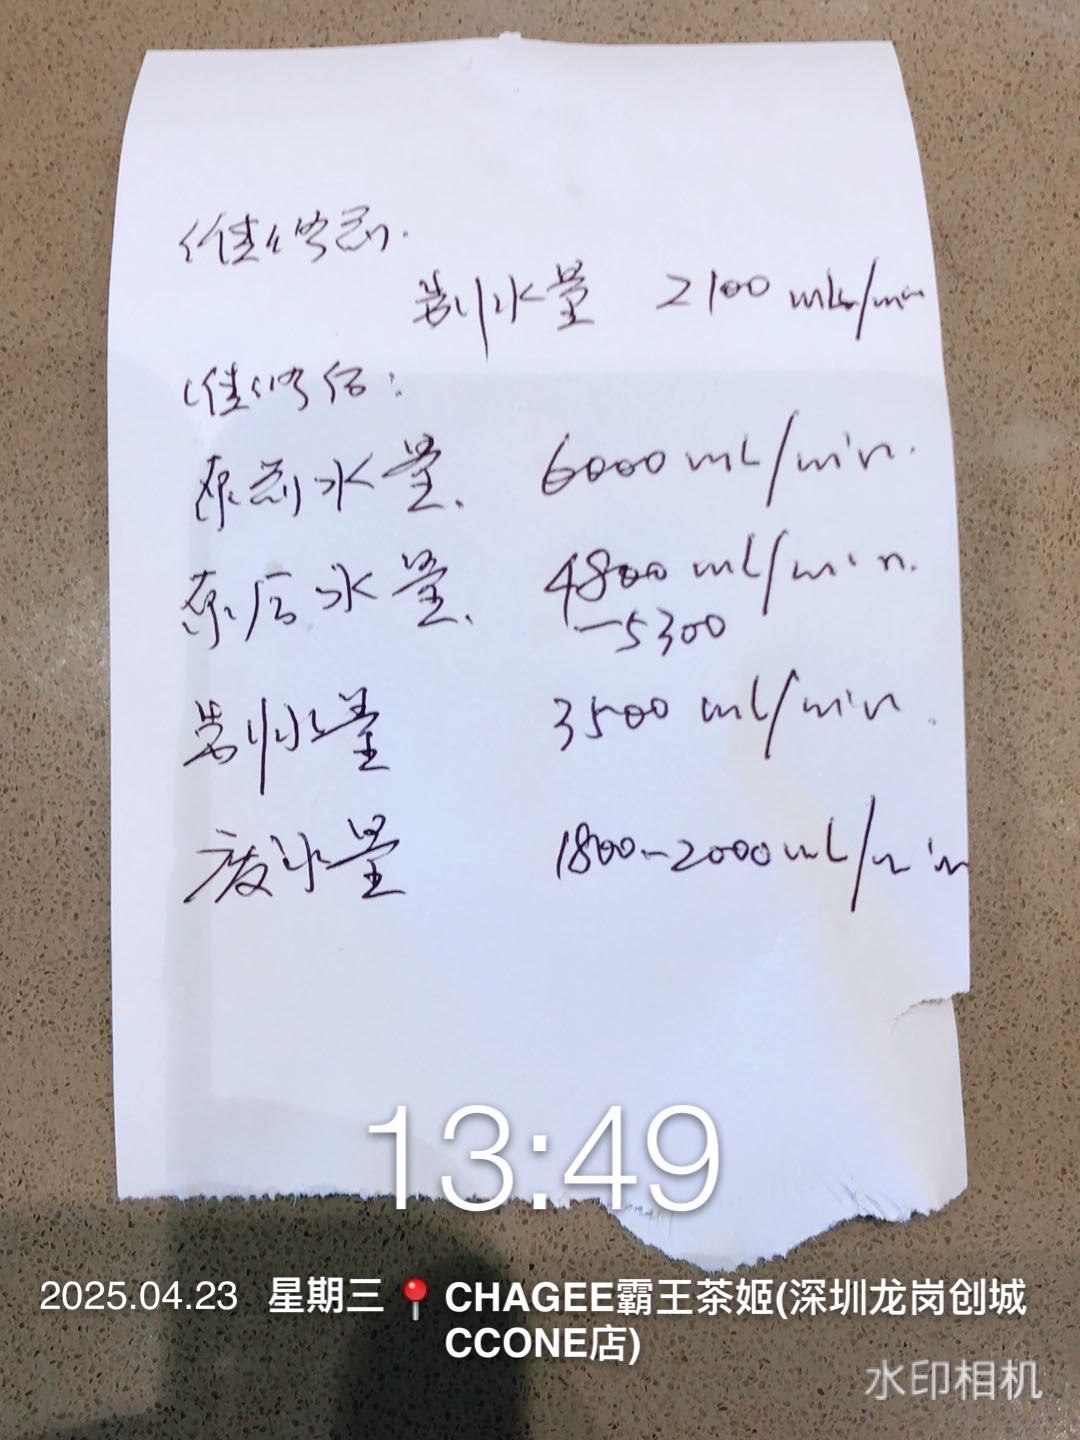 维修前.
制水量 2100 mL/min
维修后:
泵前水量. 6000 mL/min.
泵后水量. 4800 mL/min.
-5300
制水量 3500 mL/min.
废水量 1800-2000 mL/min
13:49
2025.04.23 星期三 CHAGEE霸王茶姬(深圳龙岗创城
CCONE店)
水印相机